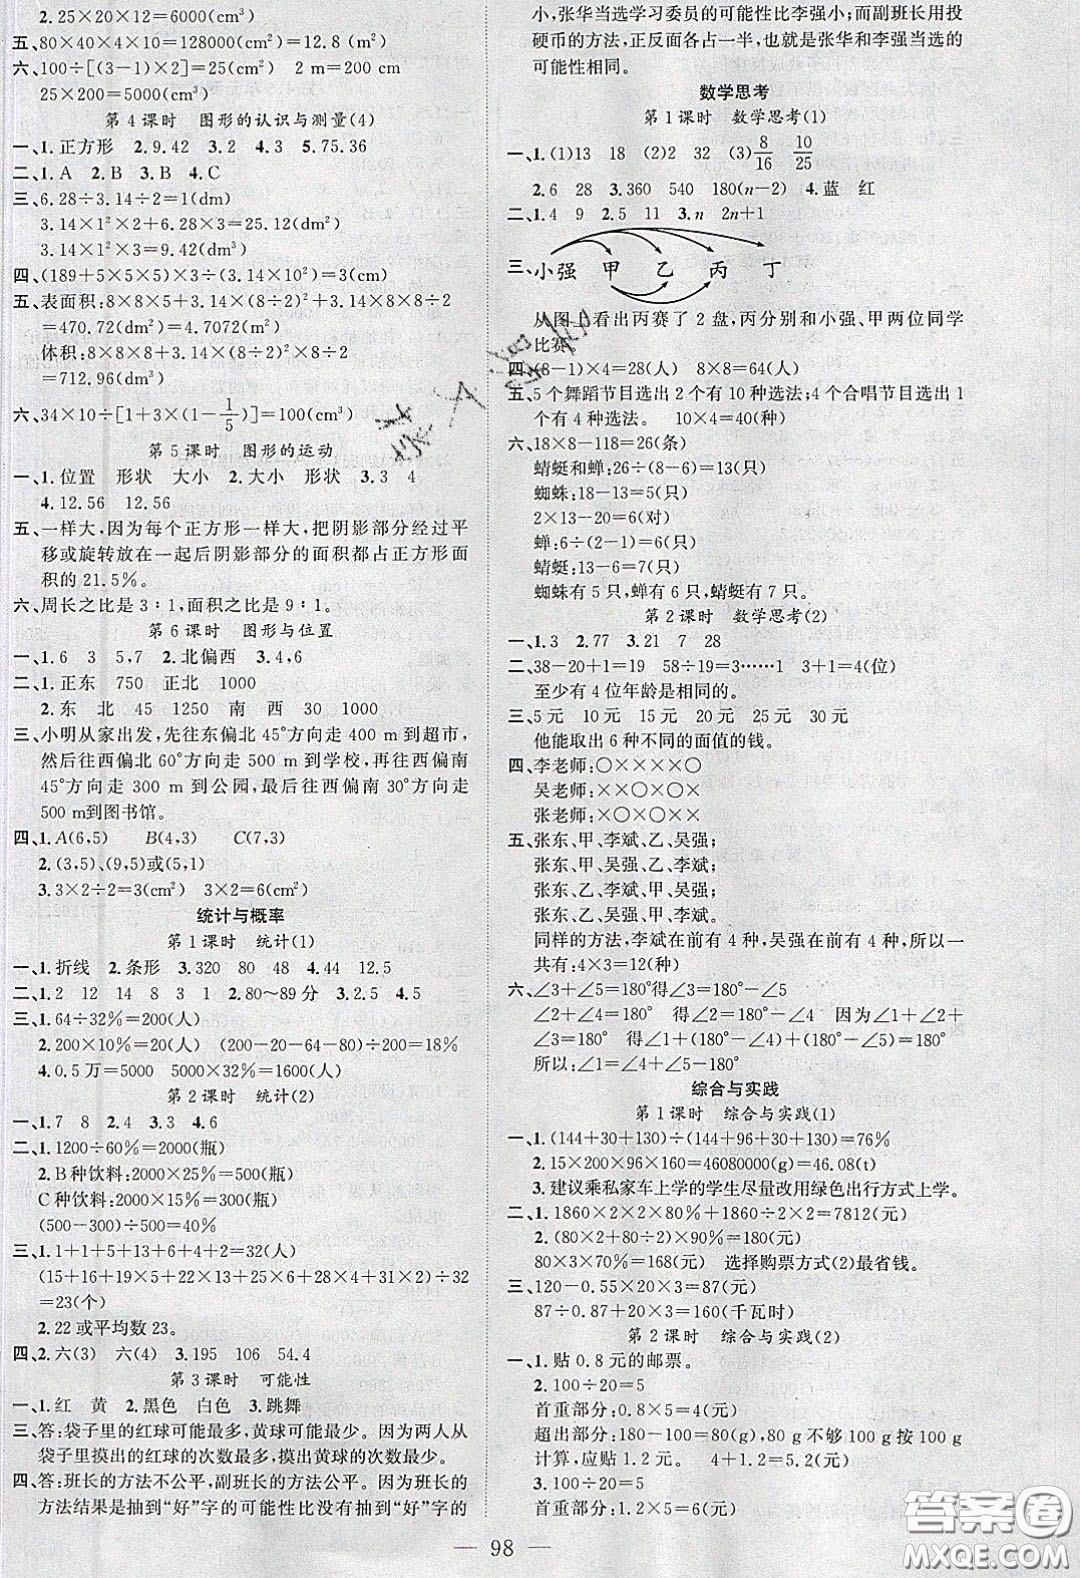 2.25×20×12=6000(cm³)
五、80×40×4×10=128000(cm³)=12.8 (m³)
六、100÷[(3-1)×2]=25(cm) 2 m=200 cm
25×200=5000(cm³)
第4课时 图形的认识与测量(4)
一、1.正方形 2.9.42 3.2 4.3 5.75.36
二、1.A 2.B 3.B 4.C
三、6.28÷3.14÷2=1(dm)
3.14×1²×2+6.28×3=25.12(dm²)
3.14×1²×3=9.42(dm³)
四、(189+5×5×5)×3÷(3.14×10²)=3(cm)
五、表面积:8×8×5+3.14×(8÷2)²+3.14×8×8÷2
=470.72(dm²)=4.7072(m²)
体积:8×8×8+3.14×(8÷2)²×8÷2
=712.96(dm³)
六、34×10÷[1+3×(1-1/5)]=100(cm³)
第5课时 图形的运动
一、1.位置 形状 大小 2.大小 形状 3.3 4
4.12.56 12.56
五、一样大,因为每个正方形一样大,把阴影部分经过平
移或旋转放在一起后阴影部分的面积都占正方形面
积的21.5%。
六、周长之比是3∶1,面积之比是9∶1。
第6课时 图形与位置
一、1.6 3 5,7 2.北偏西 3.4,6
二、1.正东 750 正北 1000
2.东 北 45 1250 南 西 30 1000
三、小明从家出发,先往东偏北45°方向走400 m到超市,
然后往西偏北60°方向走500 m到学校,再往西偏南
45°方向走300 m到公园,最后往西偏南30°方向走
500 m到图书馆。
四、1.A(6,5) B(4,3) C(7,3)
2.(3,5)、(9,5)或(5,1)
3.3×2÷2=3(cm²) 3×2=6(cm²)
统计与概率
第1课时 统计(1)
一、1.折线 2.条形 3.320 80 48 4.44 12.5
二、1.2 12 14 8 3 1 2.80~89分 3.2.5 4.5
三、1.64÷32%=200(人)
2.200×10%=20(人) (200-20-64-80)÷200=18%
4.0.5万=5000 5000×32%=1600(人)
第2课时 统计(2)
一、1.7 8 2.4 3.4 4.6
二、1.1200÷60%=2000(瓶)
2.B种饮料:2000×25%=500(瓶)
C种饮料:2000×15%=300(瓶)
(500-300)÷500=40%
三、1.1+1+5+4+5+6+4+4+2=32(人)
(15+16+19×5+22×4+25×5+26×6+28×4+31×4+32×2)÷32
=23(个)
2.22或平均数23。
四、2.六(3) 六(4) 3.195 106 54.4
第3课时 可能性
一、1.红 黄 2.黑色 白色 3.跳舞
三、答:袋子里的红球可能最多,黄球可能最少。因为两人从
袋子里摸出的红球的次数最多,摸出黄球的次数最少。
四、答:班长的方法不公平,副班长的方法公平。因为班长的
方法结果是抽到“好”字的可能性比没有抽到“好”字的
小,张华当选学习委员的可能性比李强小;而副班长用投
硬币的方法,正反面各占一半,也就是张华和李强当选的
可能性相同。
数学思考
第1课时 数学思考(1)
一、1.(1)13 18 (2)2 32 (3)8/16 10/25
2.6 28 3.360 540 180(n-2) 4.蓝 红
二、1.4 9 2.5 11 3.n 2n+1
三、小强 甲 乙 丙 丁
从图上看出丙赛了2盘,丙分别和小强、甲两位同学
比赛。
四、(8-1)×4=28(人) 8×8=64(人)
五、5个舞蹈节目选出2个有10种选法;4个合唱节目选出1
个有4种选法。 10×4=40(种)
六、18×8-118=26(条)
蜻蜓和蝉:26÷(8-6)=13(只)
蜘蛛:18-13=5(只)
2×13-20=6(对)
蝉:6÷(2-1)=6(只)
蜻蜓:13-6=7(只)
蜘蛛有5只,蝉有6只,蜻蜓有7只。
第2课时 数学思考(2)
一、1.3 2.77 3.21 7 28
二、38-20+1=19 58÷19=3……1 3+1=4(位)
至少有4位年龄是相同的。
三、5元 10元 15元 20元 25元 30元
他能取出6种不同的面值的钱。
四、李老师:○××××○
吴老师:××○○××
张老师:×○○○○×
五、张东、甲、李斌、乙、吴强;
张东、甲、吴强、乙、李斌;
张东、乙、李斌、甲、吴强;
张东、乙、吴强、甲、李斌。
同样的方法,李斌在前有4种,吴强在前有4种,所以一
共有:4×3=12(种)
六、∠3+∠5=180°得∠3=180°-∠5
∠2+∠4=180° 得∠2=180°-∠4 因为∠1+∠2+
∠3=180° 得∠1+(180°-∠4)+(180°-∠5)=180°
所以:∠1=∠4+∠5-180°
综合与实践
第1课时 综合与实践(1)
一、1.(144+30+130)÷(144+96+30+130)=76%
2.15×200×96×160=46080000(g)=46.08(t)
3.建议乘私家车上学的学生尽量改用绿色出行方式上学。
二、1.1860×2×2×80%+1860×2=7812(元)
2.(80×2+80÷2)×90%=180(元)
80×3×70%=168(元) 选择购票方式(2)最省钱。
三、120-0.55×20×3=87(元)
87÷0.87+20×3=160(千瓦时)
第2课时 综合与实践(2)
一、1.贴0.8元的邮票。
2.100÷20=5
首重部分:0.8×5=4(元)
超出部分:180-100=80(g),80 g不够100 g按100 g
计算,应贴1.2元。 4+1.2=5.2(元)
3.100÷20=5
首重部分:1.2×5=6(元)
98
答案圈
MXQE.COM